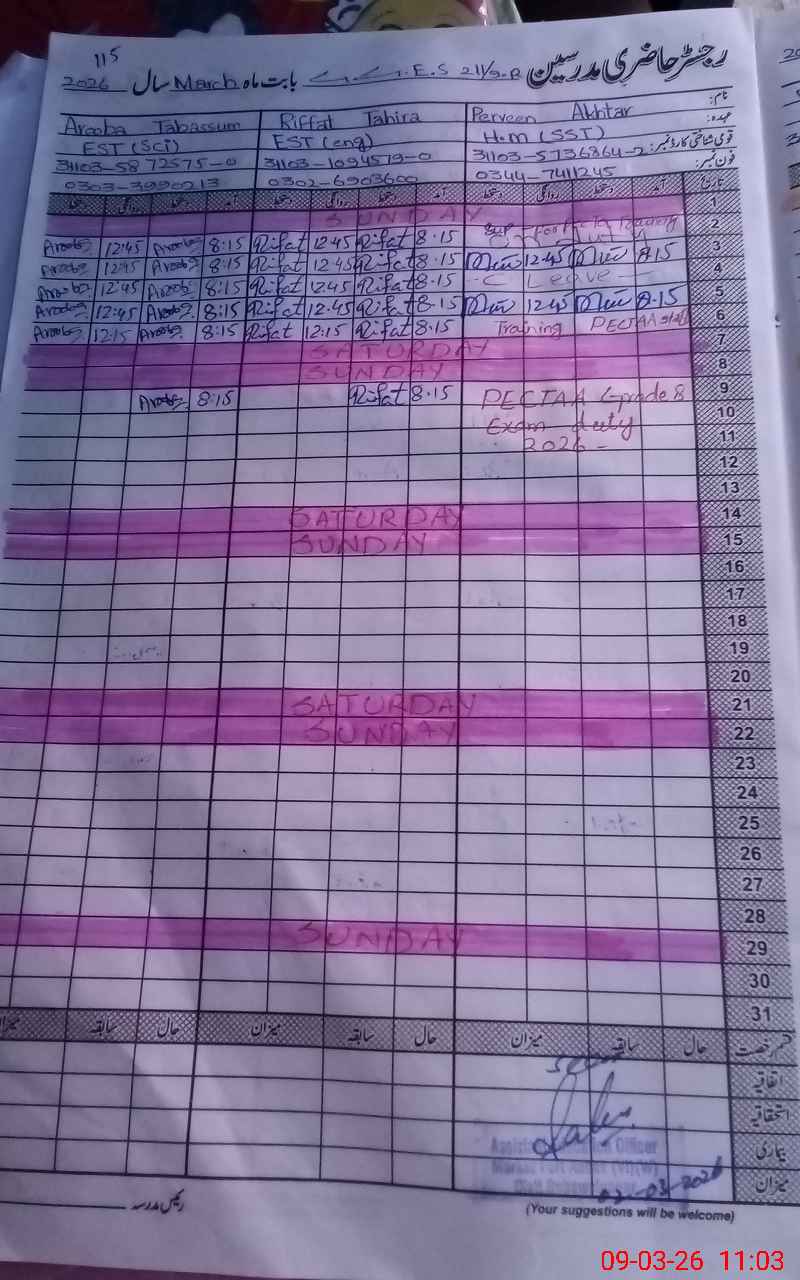 115
رجسٹر حاضری مدرسین G.G.E.S 211/9.R بابت ماہ March سال 2026
نام:
Arooba Tabassum Riffat Tahira Perveen Akhtar
عہدہ:
EST (Sci) EST (eng) H.M (SST)
قومی شناختی کارڈ نمبر:
31103-5872575-0 31103-1094579-0 31103-5736864-2
فون نمبر:
0303-3990213 0302-6903600 0344-7411245
تاریخ آمد دستخط روانگی دستخط آمد دستخط روانگی دستخط آمد دستخط روانگی دستخط
1 SUNDAY
2 Arooba 12:45 Arooba 8:15 Rifat 12.45 Rifat 8.15 Training
3 Arooba 12:45 Arooba 8:15 Rifat 12.45 Rifat 8.15 12.45 8.15
4 Arooba 12:45 Arooba 8:15 Rifat 12.45 Rifat 8.15 C Leave
5 Arooba 12:45 Arooba 8:15 Rifat 12.45 Rifat 8.15 12.45 8.15
6 Arooba 12:15 Arooba 8:15 Rifat 12:15 Rifat 8.15 Training PECTAA
7 SATURDAY
8 SUNDAY
9 Arooba 8:15 Rifat 8.15 PECTAA Grade 8
10 Exam duty
11 2026 -
12
13
14 SATURDAY
15 SUNDAY
16
17
18
19
20
21 SATURDAY
22 SUNDAY
23
24
25
26
27
28
29 SUNDAY
30
31
قسم رخصت حال سابقہ میزان حال سابقہ میزان حال سابقہ میزان
اتفاقیہ
استحقاقیہ
بیماری
میزان
02-03-2026
رئیس مدرسہ
(Your suggestions will be welcome)
09-03-26 11:03